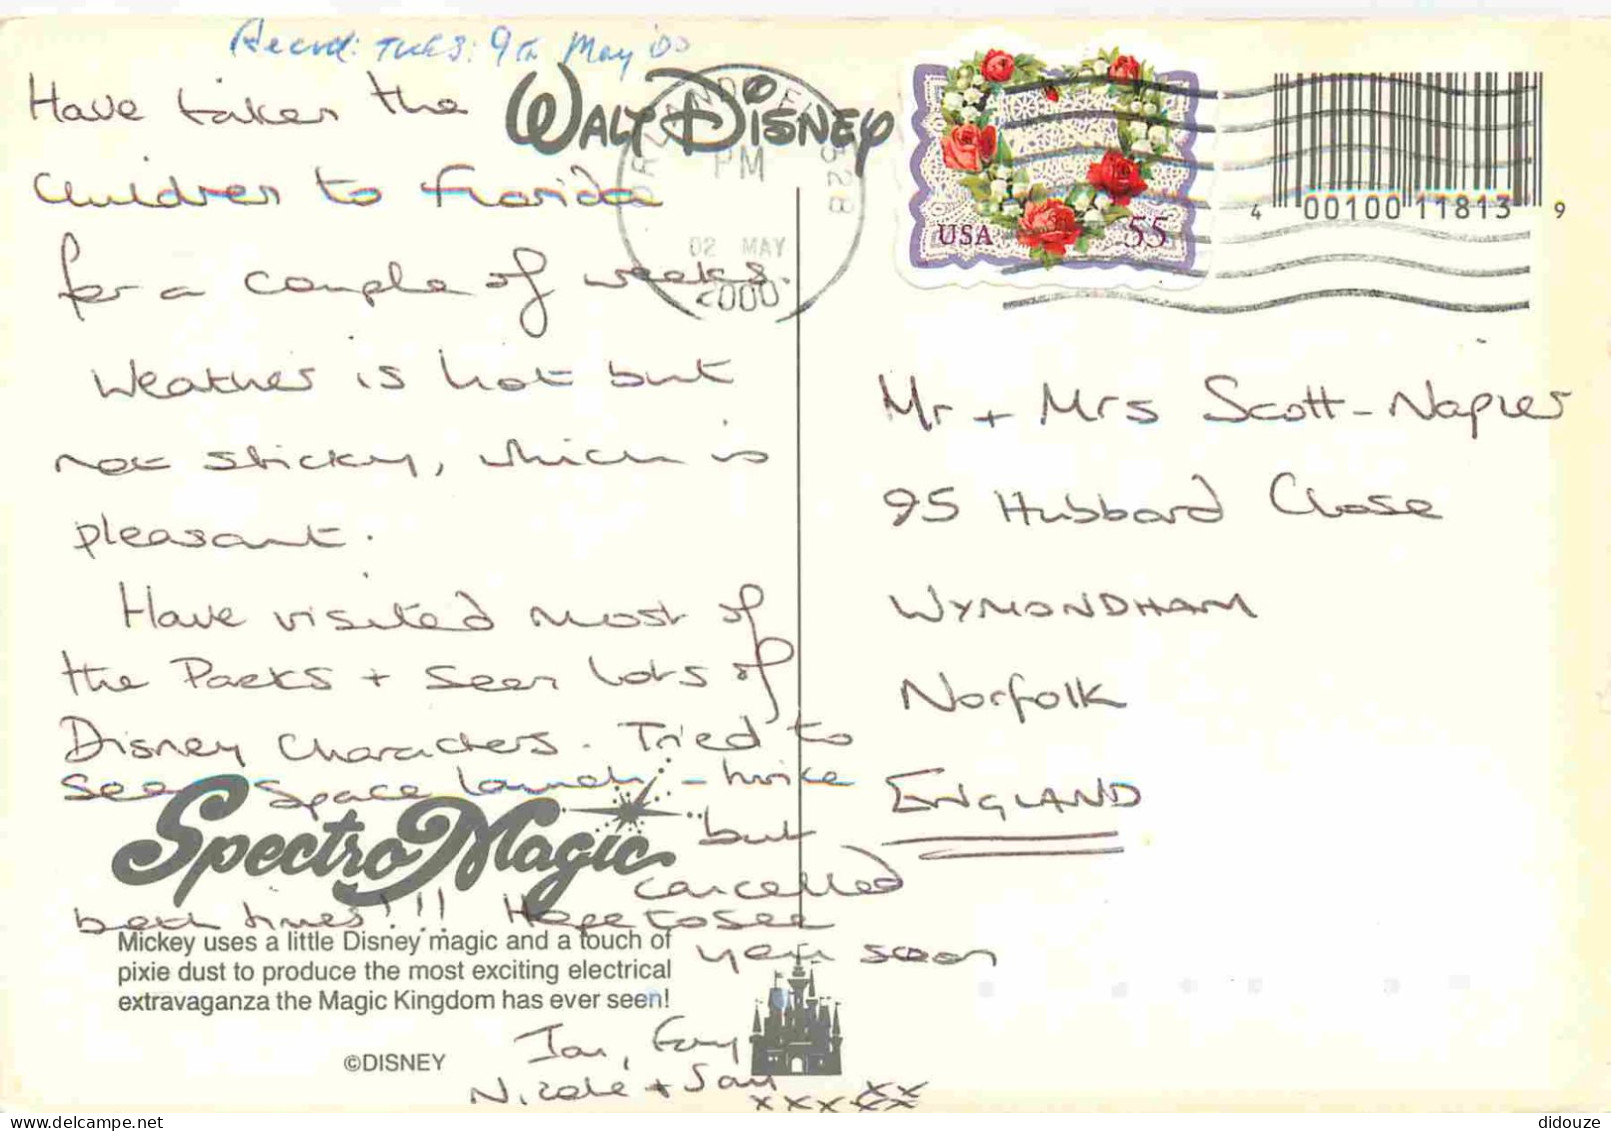 Recvd: TUES: 9th May '00
Have taken the
children to Florida
for a couple of weeks.
Weather is hot but
not sticky, which is
pleasant.
Have visited most of
the Parks + seen lots of
Disney Characters. Tried to
see Space launch - twice
but
cancelled
both times!!! Hope to see
you soon
Ian,
Nicole +
xx
xxxxxx
WALT DISNEY
PM
02 MAY
2000
328
USA 55
4 00100 11813 9
Mr + Mrs Scott-Napier
95 Hubbard Close
WYMONDHAM
Norfolk
ENGLAND
SpectroMagic
Mickey uses a little Disney magic and a touch of
pixie dust to produce the most exciting electrical
extravaganza the Magic Kingdom has ever seen!
©DISNEY
didouze
delcampe.net